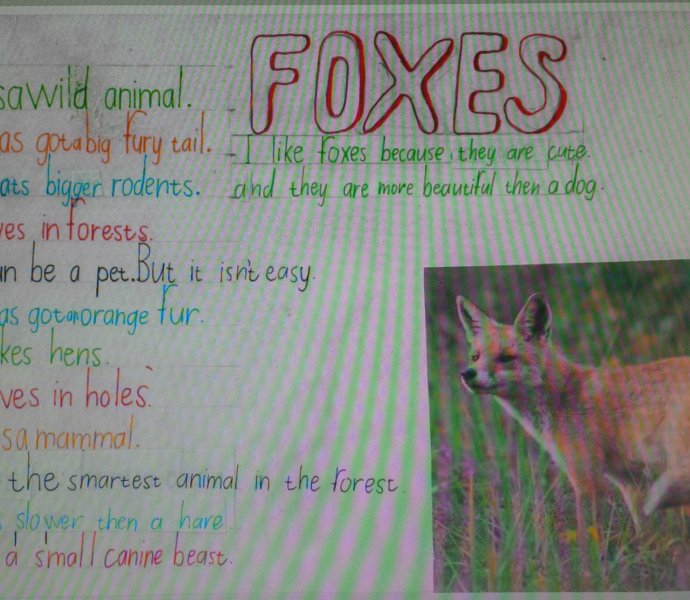 FOXES
sa wild animal.
as got a big fury tail.
ats bigger rodents.
ves in forests.
an be a pet. But it isn't easy.
as got an orange fur.
kes hens.
ves in holes.
s a mammal.
the smartest animal in the forest.
slower then a hare.
a small canine beast.
- I like foxes because they are cute.
and they are more beautiful then a dog.